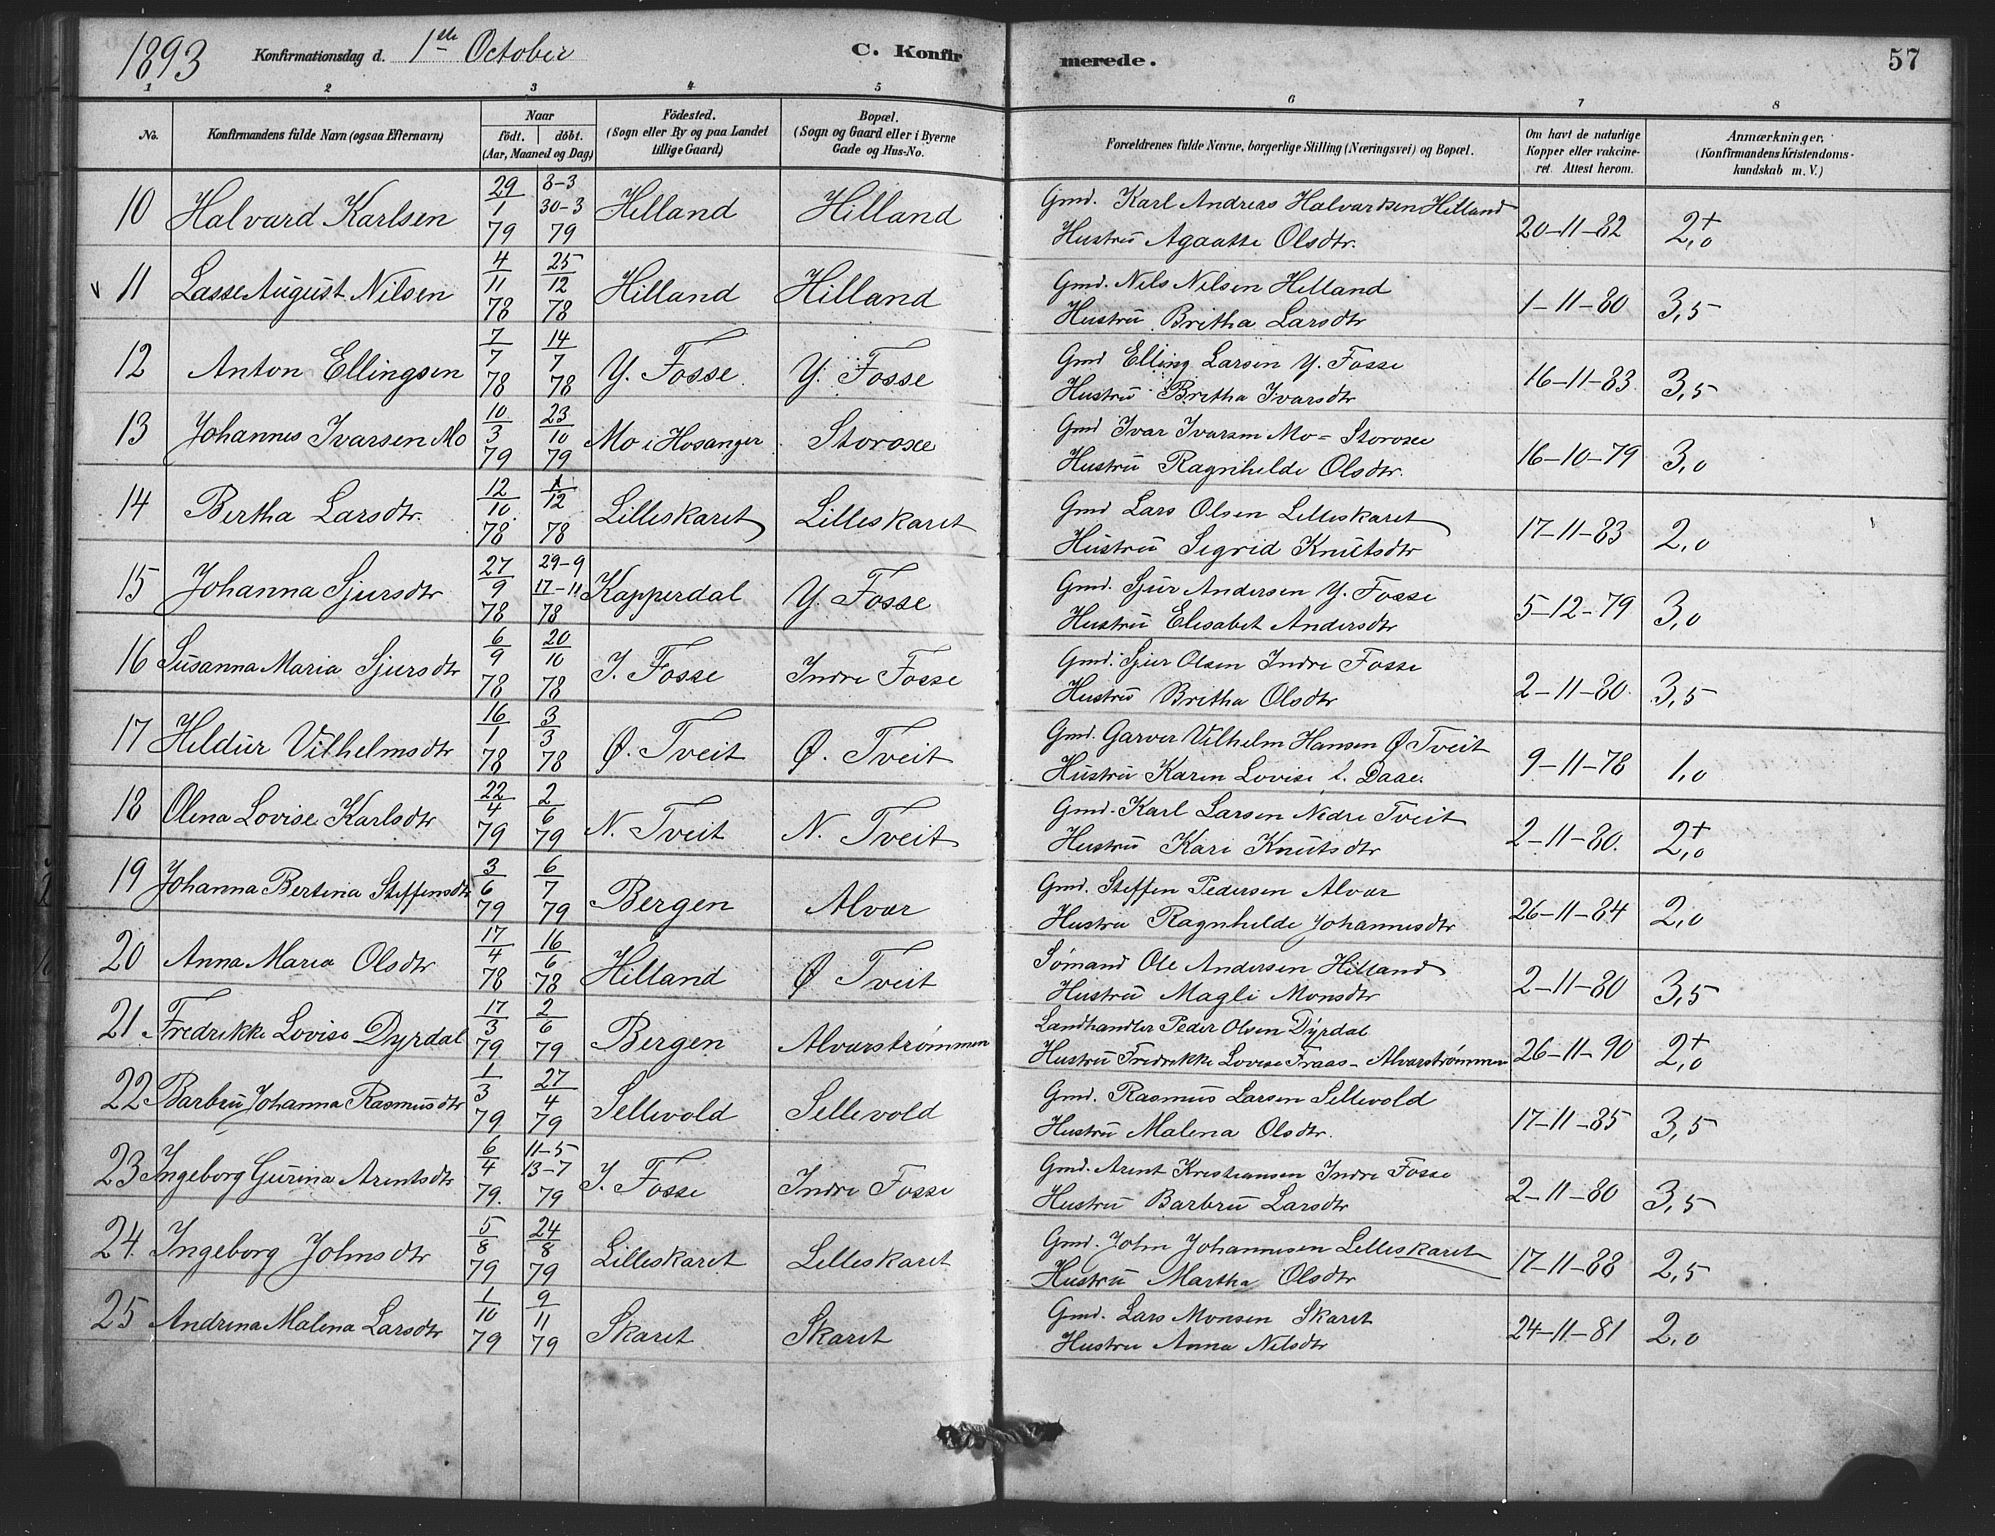 1893 Konfirmationsdag d. 1ste October C. Konfirmerede. 57
1 2 3 4 5 6 7 8
No. Konfirmandens fulde Navn (ogsaa Efternavn) Naar födt. döbt. (Aar, Maaned og Dag) Födested. (Sogn eller By og paa Landet tillige Gaard) Bopæl. (Sogn og Gaard eller i Byerne Gade og Hus-No. Forældrenes fulde Navne, borgerlige Stilling (Næringsvei) og Bopæl. Om havt de naturlige Kopper eller vakcineret. Attest herom. Anmærkninger, (Konfirmandens Kristendomskundskab m. V.)
10 Halvard Karlsen 29/1 79 8-3 30-3 79 Hilland Hilland Gmd. Karl Andreas Halvardsen Hilland 20-11-82 2,0+
Hustru Agaatte Olsdtr.
11 Lasse August Nilsen 4/11 78 25/12 78 Hilland Hilland Gmd. Nils Nilsen Hilland 1-11-80 3,5
Hustru Britha Larsdtr
12 Anton Ellingsen 7/7 78 14/7 78 Y. Fosse Y. Fosse Gmd Elling Larsen Y. Fosse 16-11-83 3,5
Hustru Britha Ivarsdtr
13 Johannes Ivarsen Mo 10/3 79 23/10 79 Mo i Hosanger Storosee Gmd Ivar Ivarsen Mo - Storosee 16-10-79 3,0
Hustru Ragnhilde Olsdtr.
14 Bertha Larsdtr. 12/10 78 1/12 78 Lilleskaret Lilleskaret Gmd Lars Olsen Lilleskaret 17-11-83 2,0
Hustru Sigrid Knutsdtr
15 Johanna Sjursdtr 27/9 78 29-9 17-11 78 Kapperdal Y. Fosse Gmd. Sjur Andersen Y. Fosse 5-12-79 3,0
Hustru Elisabet Andersdtr
16 Susanna Maria Sjursdtr 6/9 78 20/10 78 I. Fosse Indre Fosse Gmd. Sjur Olsen Indre Fosse 2-11-80 3,5
Hustru Britha Olsdtr
17 Hildur Vilhelmsdtr 16/1 78 3/3 78 Ø. Tveit Ø. Tveit Gmd. Garver Vilhelm Hansen Ø Tveit 9-11-78 1,0
Hustru Karen Lovise f. Daae.
18 Olena Lovise Karlsdtr 22/4 79 2/6 79 N. Tveit N. Tveit Gmd. Karl Larsen Nedre Tveit 2-11-80. 2,0+
Hustru Kari Knutsdtr
19 Johanna Bertina Steffensdtr 3/6 79 6/7 79 Bergen Alvær Gmd. Steffen Pedersen Alvær 26-11-84 2,0
Hustru Ragnhilde Johannesdtr
20 Anna Maria Olsdtr 17/4 78 16/6 78 Hilland Ø Tveit Sømand Ole Andersen Hilland 2-11-80 3,5
Hustru Magli Monsdtr
21 Fredrikke Lovise Dyrdal 17/3 79 2/6 79 Bergen Alværstrømmen Landhandler Peder Olsen Dyrdal 26-11-90 2,0+
Hustru Fredrekke Lovise Fraas - Alværstrømmen
22 Barbru Johanna Rasmusdtr 1/3 79 27/4 79 Sellevold Sellevold Gmd. Rasmus Larsen Sellevold 17-11-85 3,5
Hustru Malena Olsdtr.
23 Ingeborg Gurina Arentsdtr 6/4 79. 11-5 13-7 79 I. Fosse Indre Fosse Gmd. Arent Kristiansen Indre Fosse 2-11-80 3,5
Hustru Barbru Larsdtr
24. Ingeborg Johnsdtr 5/8 79 24/8 79 Lilleskaret Lilleskaret Gmd. John Johannesen Lilleskaret 17-11-88 2,5
Hustru Martha Olsdtr
25 Andrina Malena Larsdtr 1/10 79 9/11 79 Skaret Skaret Gmd. Lars Monsen Skaret 24-11-81 2,0
Hustru Anna Nilsdtr